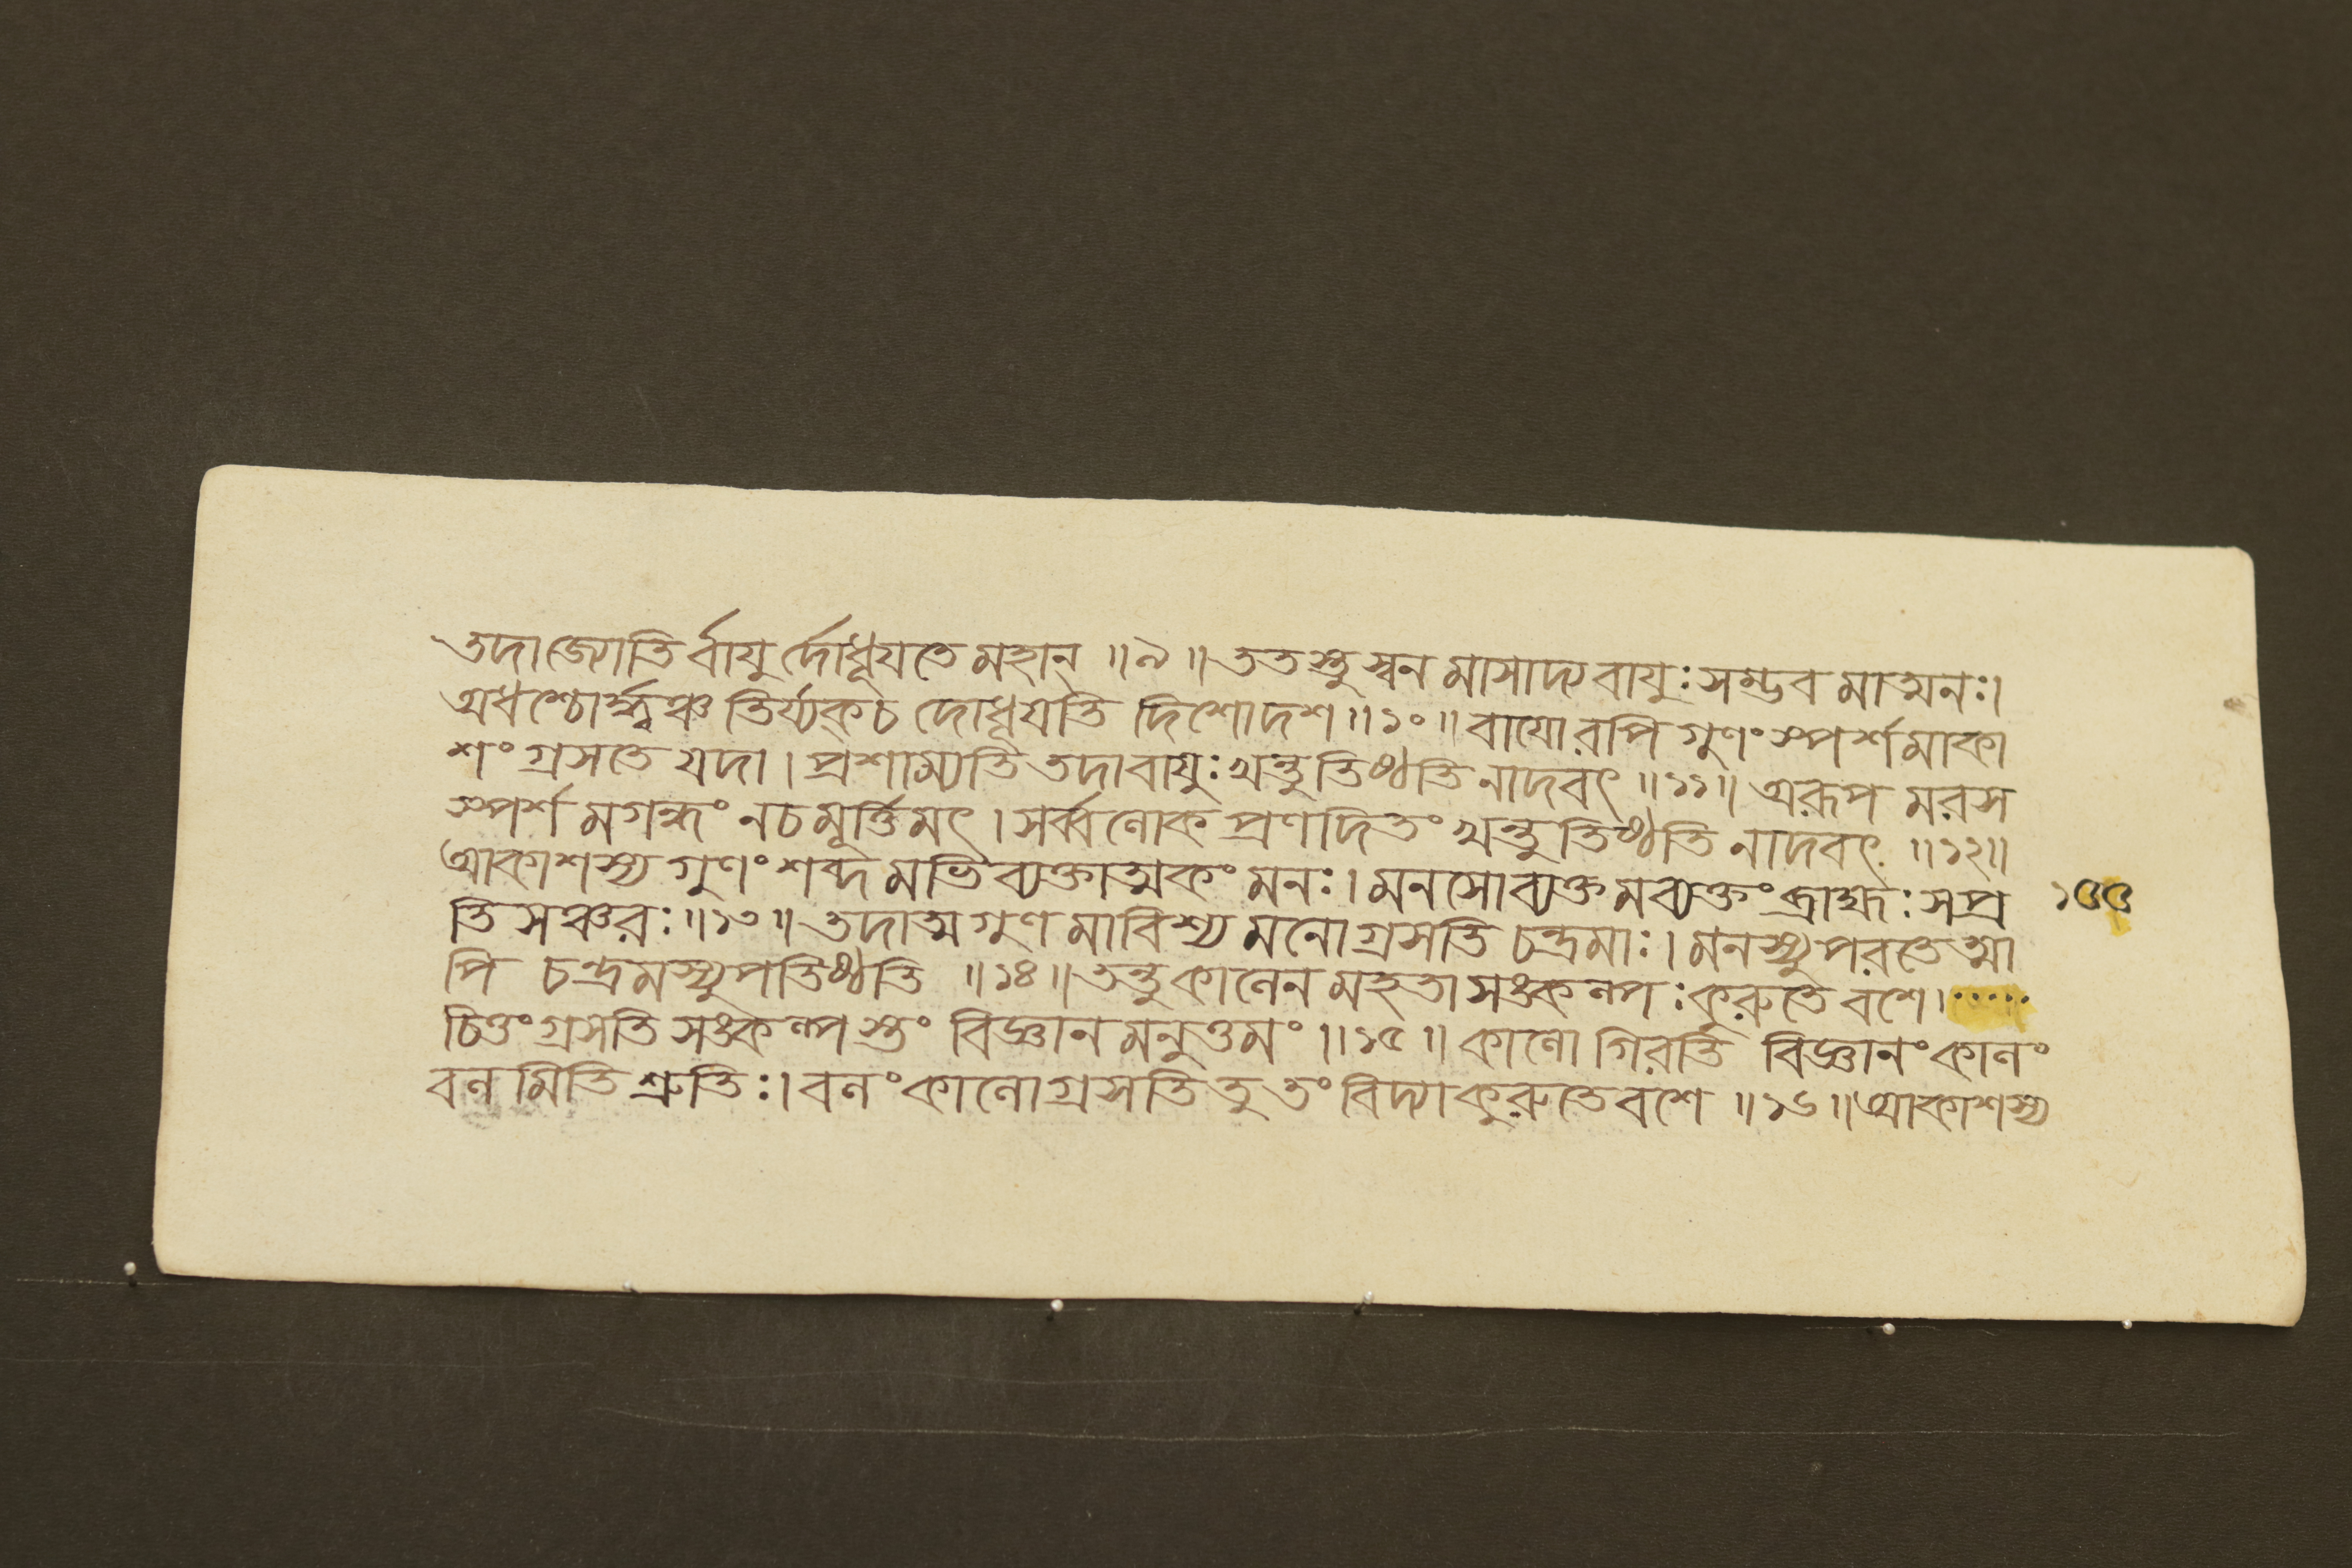 তদাজ্যোতির্বাযুর্দোধূযতেমহান্ ॥৯॥ততস্তুস্বনমাসাদ্যবাযুঃসম্ভবমাত্মনঃ।
অধশ্চোর্দ্ধ্বঞ্চতির্য্যক্চ দোধূযতি দিশোদশ॥১০॥বাযোরপিগুণংস্পর্শমাকা
শংগ্রসতেযদা।প্রশাম্যতিতদাবাযুঃখন্তুতিষ্ঠতিনাদবৎ॥১১॥এরূপ মরস
স্পর্শমগন্ধং নচমূর্ত্তিমৎ।সর্ব্বলোকপ্রণদিতংখন্তুতিষ্ঠতি নাদবৎ ॥১২॥
আকাশস্য গুণংশব্দমভিব্যক্তাত্মকংমনঃ।মনসোব্যক্তমব্যক্তংব্রাহ্মঃসপ্র
তিসঞ্চরঃ॥১৩॥তদাত্মগুণমাবিশ্য মনোগ্রসতি চন্দ্রমাঃ।মনস্যুপরতেত্মা
পি চন্দ্রমস্যুপতিষ্ঠতি ॥১৪॥তন্তুকালেনমহতাসঙকল্পঃকুরুতে বশে।.....
চিত্তংগ্রসতিসঙকল্পস্তং বিজ্ঞানমনুত্তমং॥১৫॥কালো গিরর্ত্তি বিজ্ঞানংকালং
বলমিতিশ্রুতিঃ।বলংকালোগ্রসতিতু তংবিদ্যাকুরুতেবশে॥১৬॥আকাশস্য
১৫৫